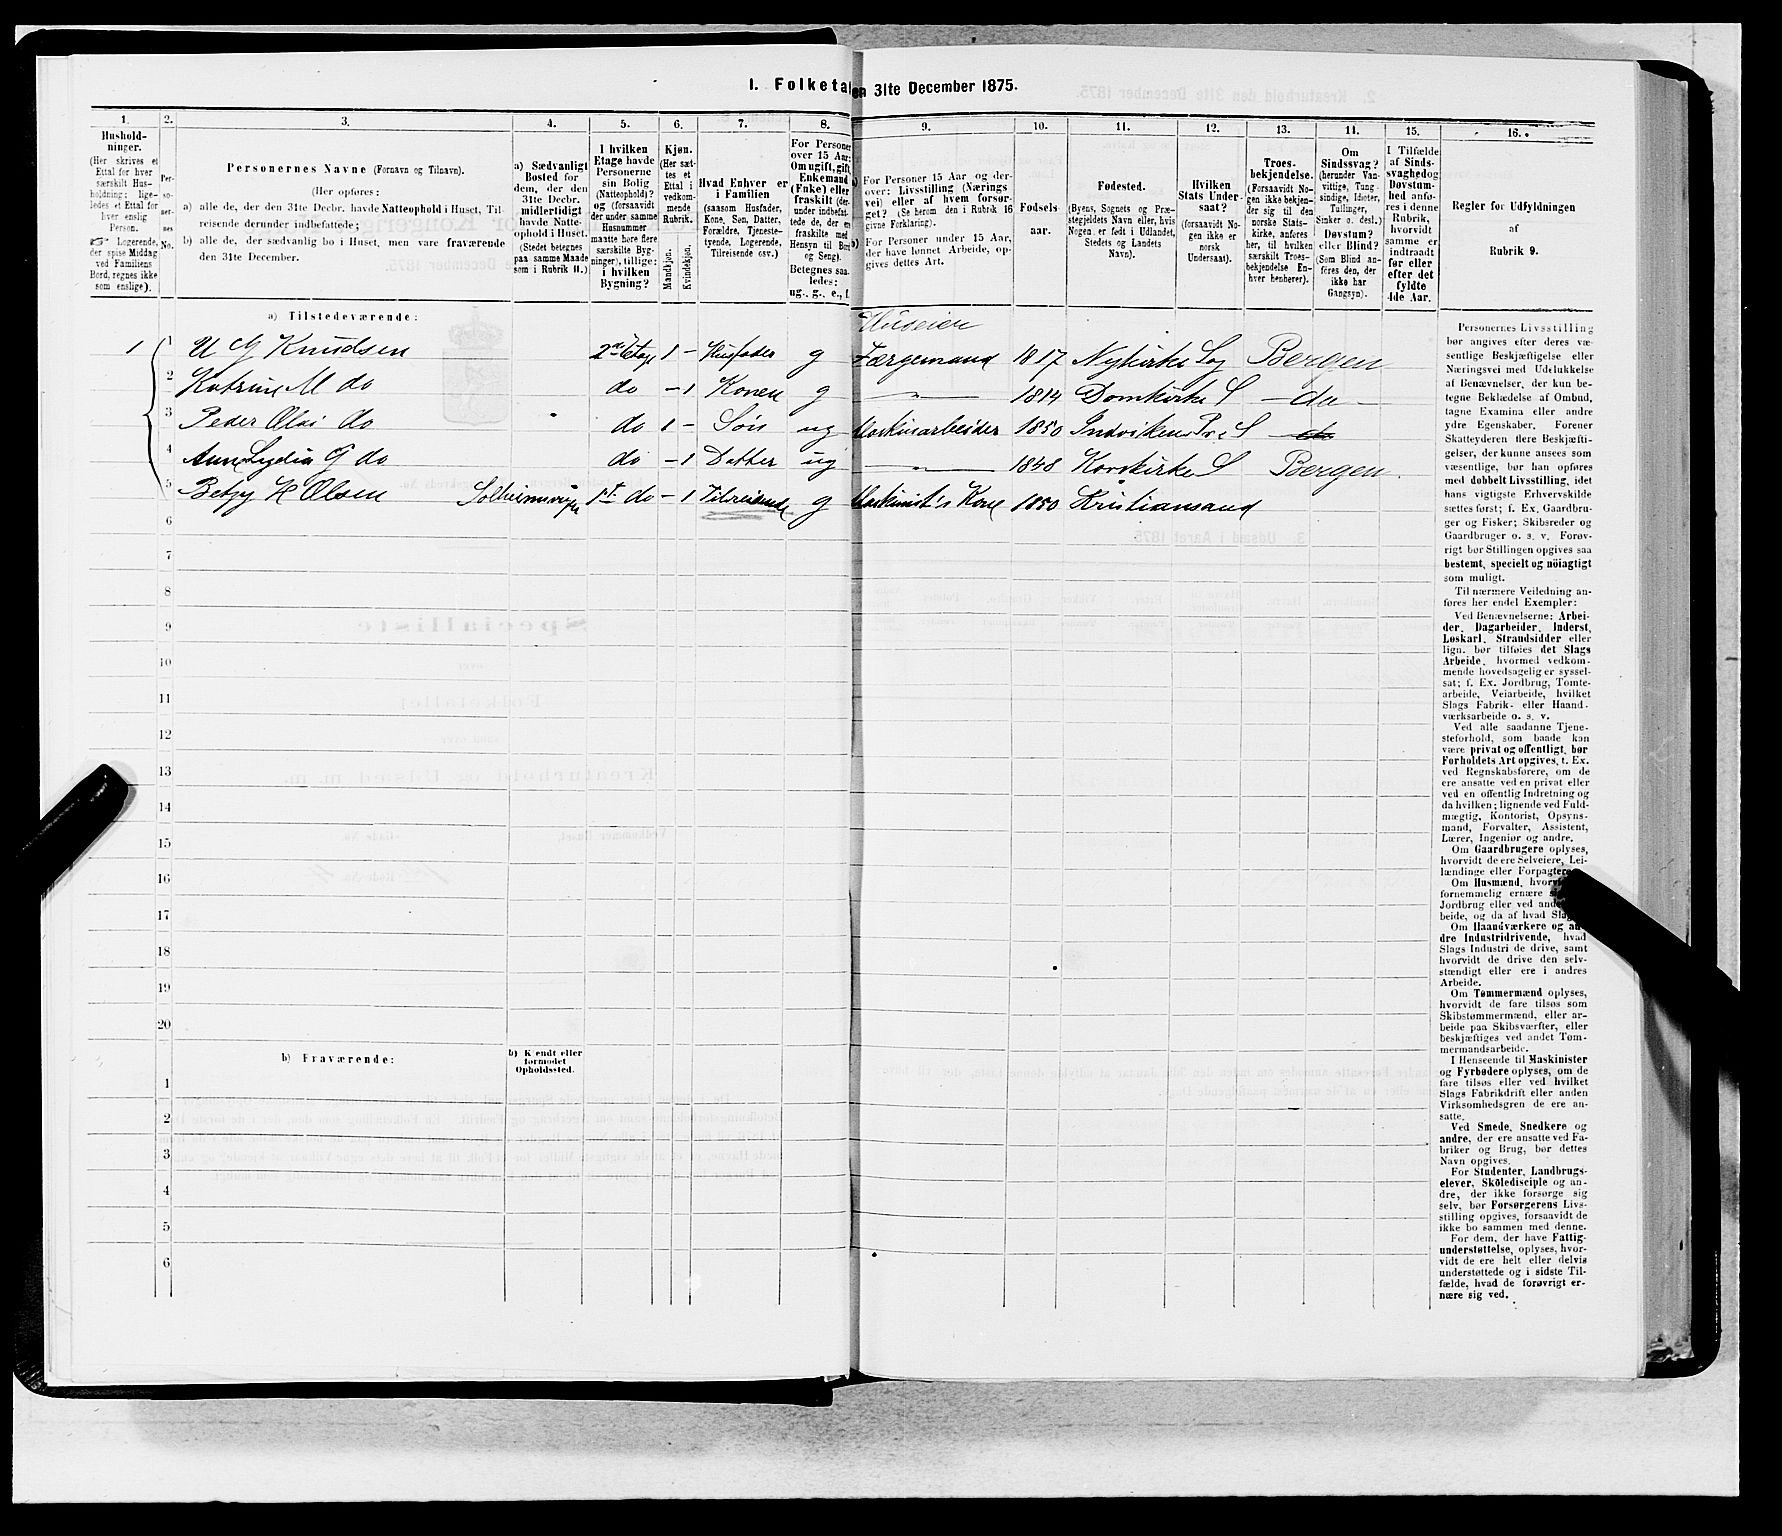 1. Folketallet den 31te December 1875.
1. 2. 3. 4. 5. 6. 7. 8. 9. 10. 11. 12. 13. 14. 15. 16.
Hushold-
ninger.
(Her skrives et
Ettal for hver
særskilt Hus-
holdning; lige-
ledes et Ettal for
hver enslig
Person.
Logerende,
der spise Middag
ved Familiens
Bord, regnes ikke
som enslige).
Per-
so-
ner-
nes
No.
Personernes Navne (Fornavn og Tilnavn).
(Her opføres:
a) alle de, der den 31te Decbr. havde Natteophold i Huset, Til-
reisende derunder indbefattede;
b) alle de, der sædvanlig bo i Huset, men vare fraværende
den 31te December.
a) Sædvanligt
Bosted for
dem, der den
31te Decbr.
midlertidigt
havde Natte-
ophold i Huset.
(Stedet betegnes
paa samme Maade
som i Rubrik 11.)
I hvilken
Etage havde
Personerne
sin Bolig
(Natteophold)?
og (forsaavidt
der under samme
Husnummer
maatte høre flere
særskilte Byg-
ninger), tillige:
i hvilken
Bygning?
Kjøn.
(Her sæt-
tes et
Ettal i
vedkom-
mende
Rubrik.
Mandkjøn.
Kvindekjøn.
Hvad Enhver er
i Familien
(saasom Husfader,
Kone, Søn, Datter,
Forældre, Tjeneste-
tyende, Logerende,
Tilreisende osv.)
For Personer
over 15 Aar:
Om ugift, gift,
Enkemand
(Enke) eller
fraskilt (der-
under indbefat-
tede de, der ere
fraskilte med
Hensyn til Bord
og Seng).
Betegnes saa-
ledes:
ug., g., e., f.
a) For Personer 15 Aar og der-
over: Livsstilling (Nærings-
vei) eller af hvem forsør-
get? (Se herom den i Rubrik 16
givne Forklaring).
b) For Personer under 15 Aar,
der have lønnet Arbeide, op-
gives dettes Art.
Fødsels-
aar.
Fødested.
(Byens, Sognets og Præ-
stegjeldets Navn eller, hvis
Nogen er født i Udlandet,
Stedets og Landets
Navn).
Hvilken
Stats Under-
saat?
(forsaavidt No-
gen ikke er
norsk
Undersaat).
Troes-
bekjendelse.
(Forsaavidt No-
gen ikke bekjen-
der sig til den
norske Stats-
kirke, anføres
her, til hvilken
særskilt Troes-
bekjendelse En-
hver henhører).
Om
Sindssvag?
(herunder Van-
vittige, Tung-
sindige, Idioter,
Tullinger,
Sinker o. desl.)
Døvstum?
eller Blind?
(Som Blind an-
føres den, der
ikke har
Gangsyn).
I Tilfælde
af Sinds-
svaghed og
Døvstum-
hed anfø-
res i denne
Rubrik,
hvorvidt
samme er
indtraadt
før eller
efter det
fyldte
4de Aar.
Regler for Udfyldningen
af
Rubrik 9.
a) Tilstedeværende:
Huseier
1 1 2den Etage 1 - Husfader g Færgemand 1817 Nykirke Sog Bergen
U G Knudsen
2 Katrine M do do - 1 Konen g — " — 1814 Domkirke S - do -
3 Peder Olai do do 1 - Søn ug Maskinarbeider 1850 Indvikens Pr. S
4 Anne Lydia G do do - 1 Datter ug — " — 1858 Korskirke S Bergen
5 Betzy H Olsen 1st do - 1 Tilreisende g Maskinist's Kone 1850 Kristiansand
6
7
8
9
10
11
12
13
14
15
16
17
18
19
20
b) Fraværende:
b) Kjendt eller
formodet
Opholdssted.
1
2
3
4
5
6
Personernes Livsstilling
bør angives efter deres væ-
sentlige Beskjæftigelse eller
Næringsvei med Udelukkelse
af Benævnelser, der kun be-
tegne Beklædelse af Ombud,
tagne Examina eller andre
ydre Egenskaber. Forener
Skatteyderen flere Beskjæfti-
gelser, der kunne ansees som
væsentlige, bør han opføres
med dobbelt Livsstilling, idet
hans vigtigste Erhvervskilde
sættes først; f. Ex. Gaardbru-
ger og Fisker; Skibsreder og
Gaardbruger o. s. v. Forøv-
rigt bør Stillingen opgives saa
bestemt, specielt og nöiagtigt
som muligt.
Til nærmere Veiledning an-
føres her endel Exempler:
Ved Benævnelserne: Arbei-
der, Dagarbeider, Inderst,
Løskarl, Strandsidder eller
lign. bør tilføies det Slags
Arbeide, hvormed vedkom-
mende hovedsagelig er syssel-
sat; f. Ex. Jordbrug, Tomte-
arbeide, Veiarbeide, hvilket
Slags Fabrik- eller Haand-
værksarbeide o. s. v.
Ved alle saadanne Tjene-
steforhold, som baade kan
være privat og offentligt, bør
Forholdets Art opgives, f. Ex.
ved Regnskabsførere, om de
ere ansatte ved en privat eller
ved en offentlig Indretning og
da hvilken; lignende ved Fuld-
mægtig, Kontorist, Opsyns-
mand, Forvalter, Assistent,
Lærer, Ingeniør og andre.
Om Gaardbrugere oplyses,
hvorvidt de ere Selveiere, Lei-
lændinge eller Forpagtere.
Om Husmænd,
fornemmelig ernære
Jordbrug eller ved
beide, og da af hvad
Om Haandværkere og an-
dre Industridrivende, hvad
Slags Industri de drive, samt
hvorvidt de drive den selv-
stændigt eller ere i andres
Arbeide.
Om Tømmermænd oplyses,
hvorvidt de fare tilsøs som
Skibstømmermænd, eller ar-
beide paa Skibsværfter, eller
beskjæftiges ved andet Tøm-
mermandsarbeide.
I Henseende til Maskinister
og Fyrbødere oplyses, om de
fare tilsøs eller ved hvilket
Slags Fabrikdrift eller anden
Virksomhedsgren de ere an-
satte.
Ved Smede, Snedkere og
andre, der ere ansatte ved Fa-
briker og Brug, bør dettes
Navn opgives.
For Studenter, Landbrugs-
elever, Skoledisciple og an-
dre, der ikke forsørge sig
selv, bør Forsørgerens Livs-
stilling opgives, forsaavidt de
ikke bo sammen med denne.
For dem, der have Fattig-
understøttelse, oplyses, hvor-
vidt de ere helt eller delvis
understøttede og i sidste Til-
fælde, hvad de forøvrigt er-
nære sig ved.